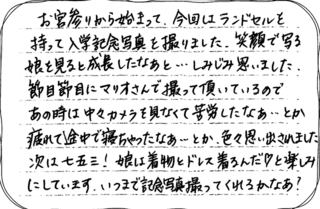 お宮参りから始まって、今回はランドセルを
持って入学記念写真を撮りました。笑顔で写る
娘を見ると成長したなぁと…しみじみ思いました。
節目節目にマリオさんで撮って頂いているので
あの時は中々カメラを見なくて苦労したなぁ…とか
疲れて途中で寝ちゃったなぁ…とか、色々思い出されました
次は七五三!娘は着物とドレス着るんだ!!と楽しみ
にしています。いつまで記念写真撮ってくれるかなぁ?